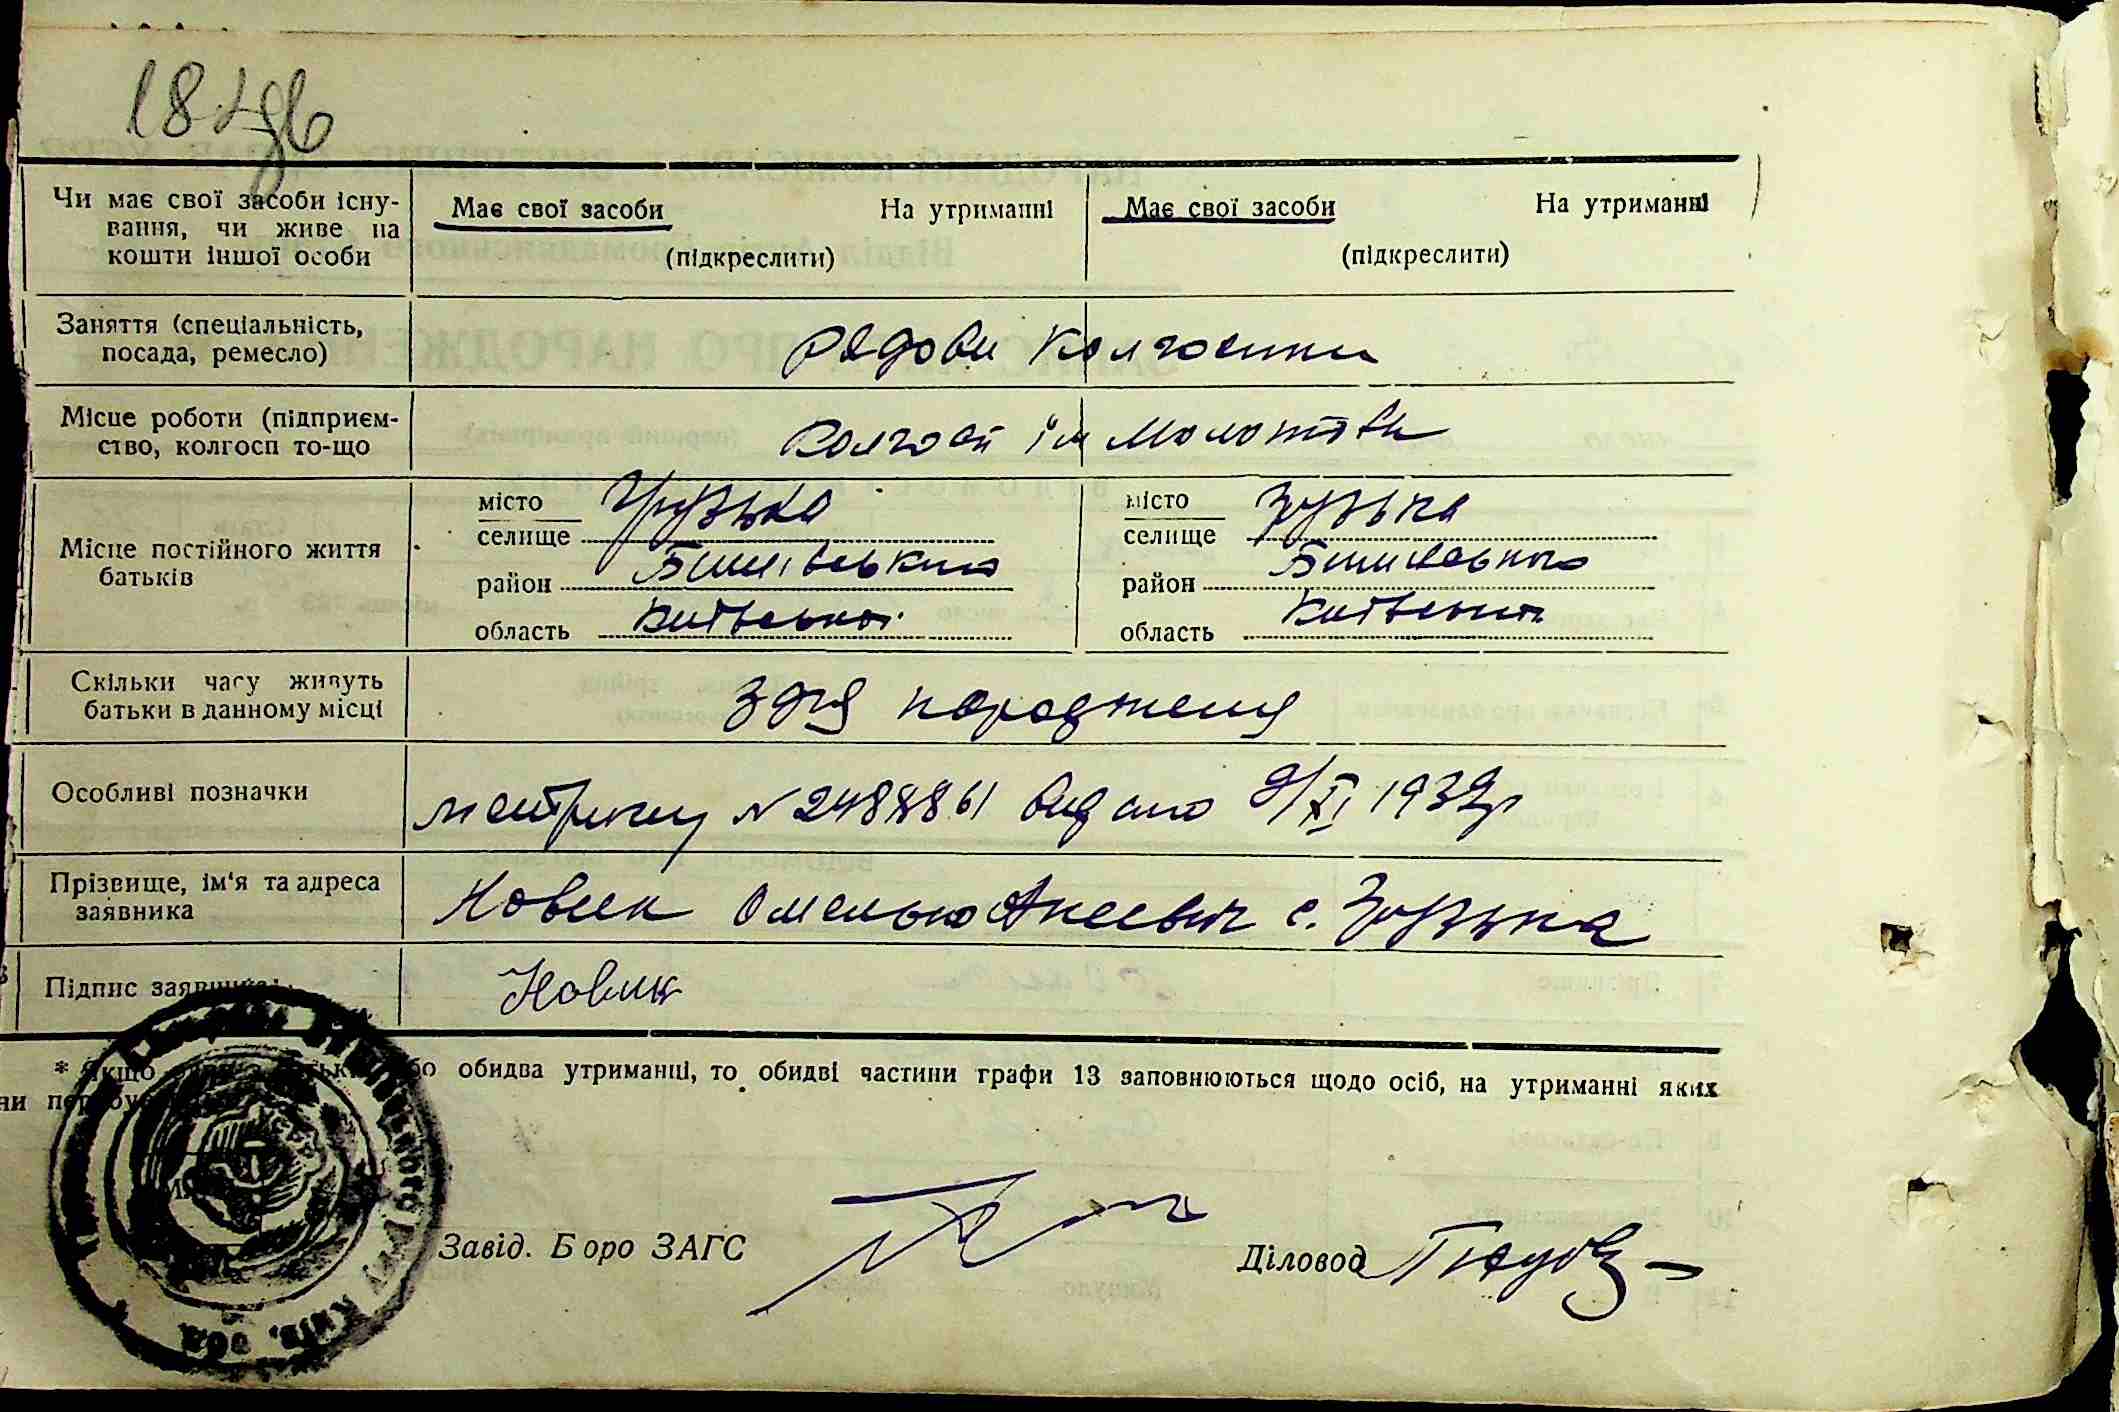 Чи має свої засоби існу-
вання, чи живе на
кошти іншої особи
Має свої засоби На утриманні
(підкреслити)
Має свої засоби На утриманні
(підкреслити)
Заняття (спеціальність,
посада, ремесло)
Рядови Колгоспники
Місце роботи (підприєм-
ство, колгосп то-що
Колгосп ім Молотова
Місце постійного життя
батьків
місто Грузька
селище
район Бишівського
область Київської
місто Грузька
селище
район Бишівського
область Київської
Скільки часу живуть
батьки в данному місці
З дня народженя
Особливі позначки
метрику № 2488861 видано 9/XI 1939р
Прізвище, ім'я та адреса
заявника
Новик Омелько с. Грузька
Підпис заявника:
Новик
* Якщо обидва утриманці, то обидві частини графи 13 заповнюються щодо осіб, на утриманні яких
Завід. Б оро ЗАГС
Діловод